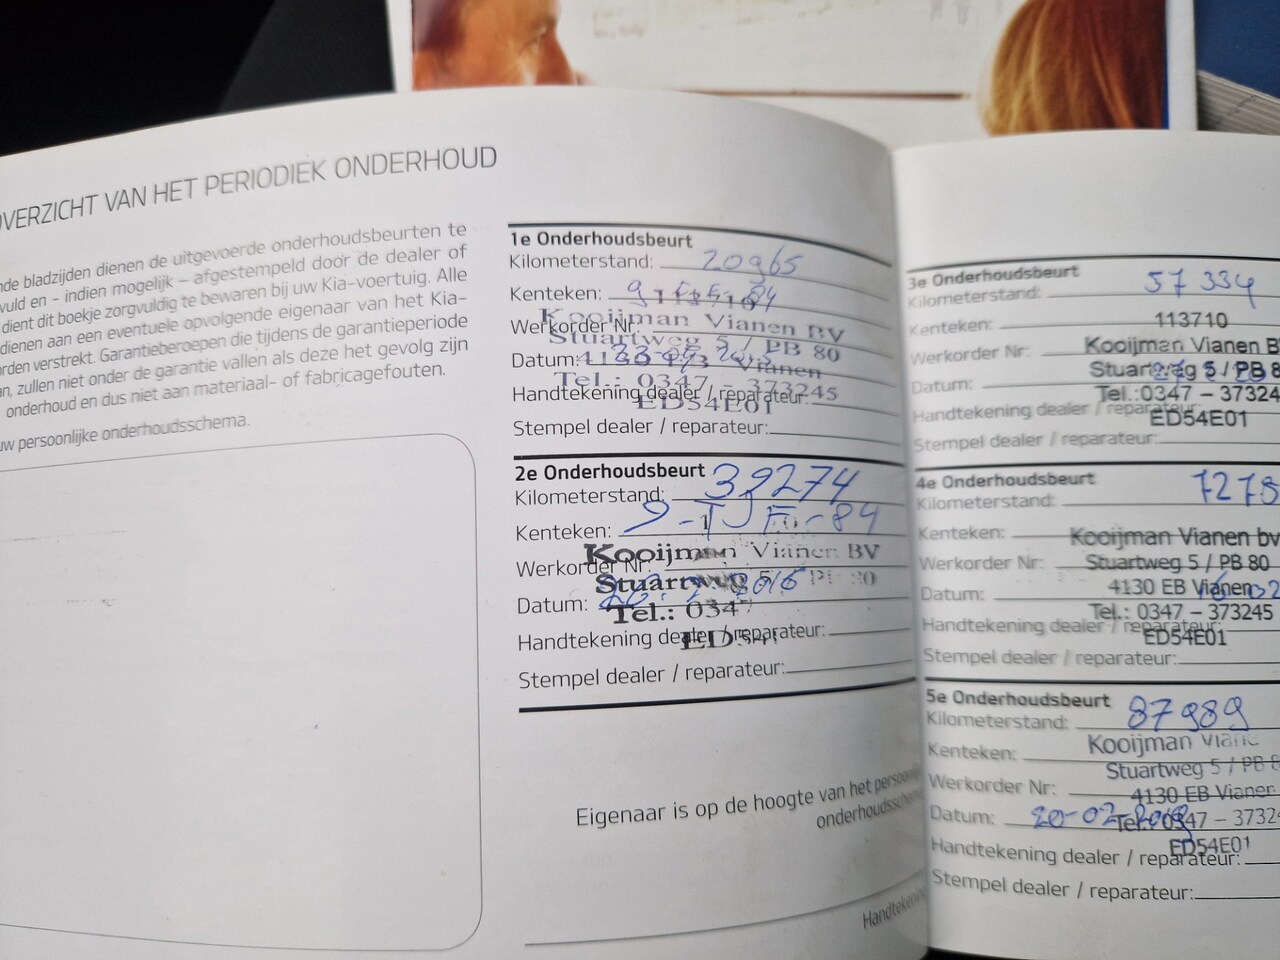 OVERZICHT VAN HET PERIODIEK ONDERHOUD
nde bladzijden dienen de uitgevoerde onderhoudsbeurten te
vuld en - indien mogelijk – afgestempeld door de dealer of
dient dit boekje zorgvuldig te bewaren bij uw Kia-voertuig. Alle
dienen aan een eventuele opvolgende eigenaar van het Kia-
orden verstrekt. Garantieberoepen die tijdens de garantieperiode
an, zullen niet onder de garantie vallen als deze het gevolg zijn
onderhoud en dus niet aan materiaal- of fabricagefouten.
uw persoonlijke onderhoudsschema.
1e Onderhoudsbeurt
Kilometerstand: 20965
Kenteken:
Kooijman Vianen BV
Werkorder Nr:
Stuartweg 5 / PB 80
Datum: Vianen
Tel.: 0347 – 373245
Handtekening dealer / reparateur:
ED54E01
Stempel dealer / reparateur:
2e Onderhoudsbeurt
Kilometerstand: 39274
Kenteken:
Kooijman Vianen BV
Werkorder Nr:
Stuartweg
Datum:
Tel.: 0347
Handtekening dealer / reparateur:
Stempel dealer / reparateur:
Eigenaar is op de hoogte van het persoonlij
onderhoudssche
Handtekening
3e Onderhoudsbeurt
Kilometerstand: 57 334
Kenteken: 113710
Kooijman Vianen B
Werkorder Nr:
Stuartweg 5 / PB 8
Datum:
Tel.:0347 – 37324
Handtekening dealer / reparateur:
ED54E01
Stempel dealer / reparateur:
4e Onderhoudsbeurt
Kilometerstand: 7278
Kenteken:
Kooijman Vianen bv
Werkorder Nr: Stuartweg 5 / PB 80
4130 EB Vianen
Datum:
Tel.: 0347 – 373245
Handtekening dealer / reparateur:
ED54E01
Stempel dealer / reparateur:
5e Onderhoudsbeurt
Kilometerstand: 87989
Kooijman Viane
Kenteken:
Stuartweg 5 / PB 8
Werkorder Nr:
4130 EB Vianen
Datum: 20-02
Tel.: 0347 – 3732
Handtekening dealer / reparateur:
ED54E01
Stempel dealer / reparateur: